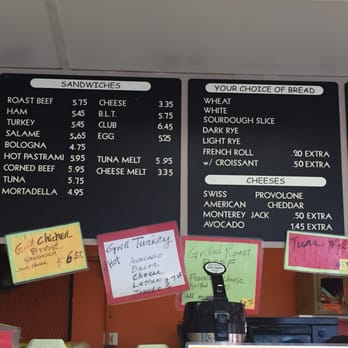 SANDWICHES
ROAST BEEF 5.75
HAM 5.45
TURKEY 5.45
SALAME 5.65
BOLOGNA 4.75
HOT PASTRAMI 5.95
CORNED BEEF 5.95
TUNA 5.75
MORTADELLA 4.95
CHEESE 3.35
B.L.T. 5.75
CLUB 6.45
EGG 5.25
TUNA MELT 5.95
CHEESE MELT 3.35
YOUR CHOICE OF BREAD
WHEAT
WHITE
SOURDOUGH SLICE
DARK RYE
LIGHT RYE
FRENCH ROLL .20 EXTRA
w/ CROISSANT .50 EXTRA
CHEESES
SWISS PROVOLONE
AMERICAN CHEDDAR
MONTEREY JACK .50 EXTRA
AVOCADO 1.45 EXTRA
Grill Chicken
Breast
SANDWICH
Grill Turkey
Hot Avocado
Bacon
Cheese
Grilled Roast
Cheese
Tuna